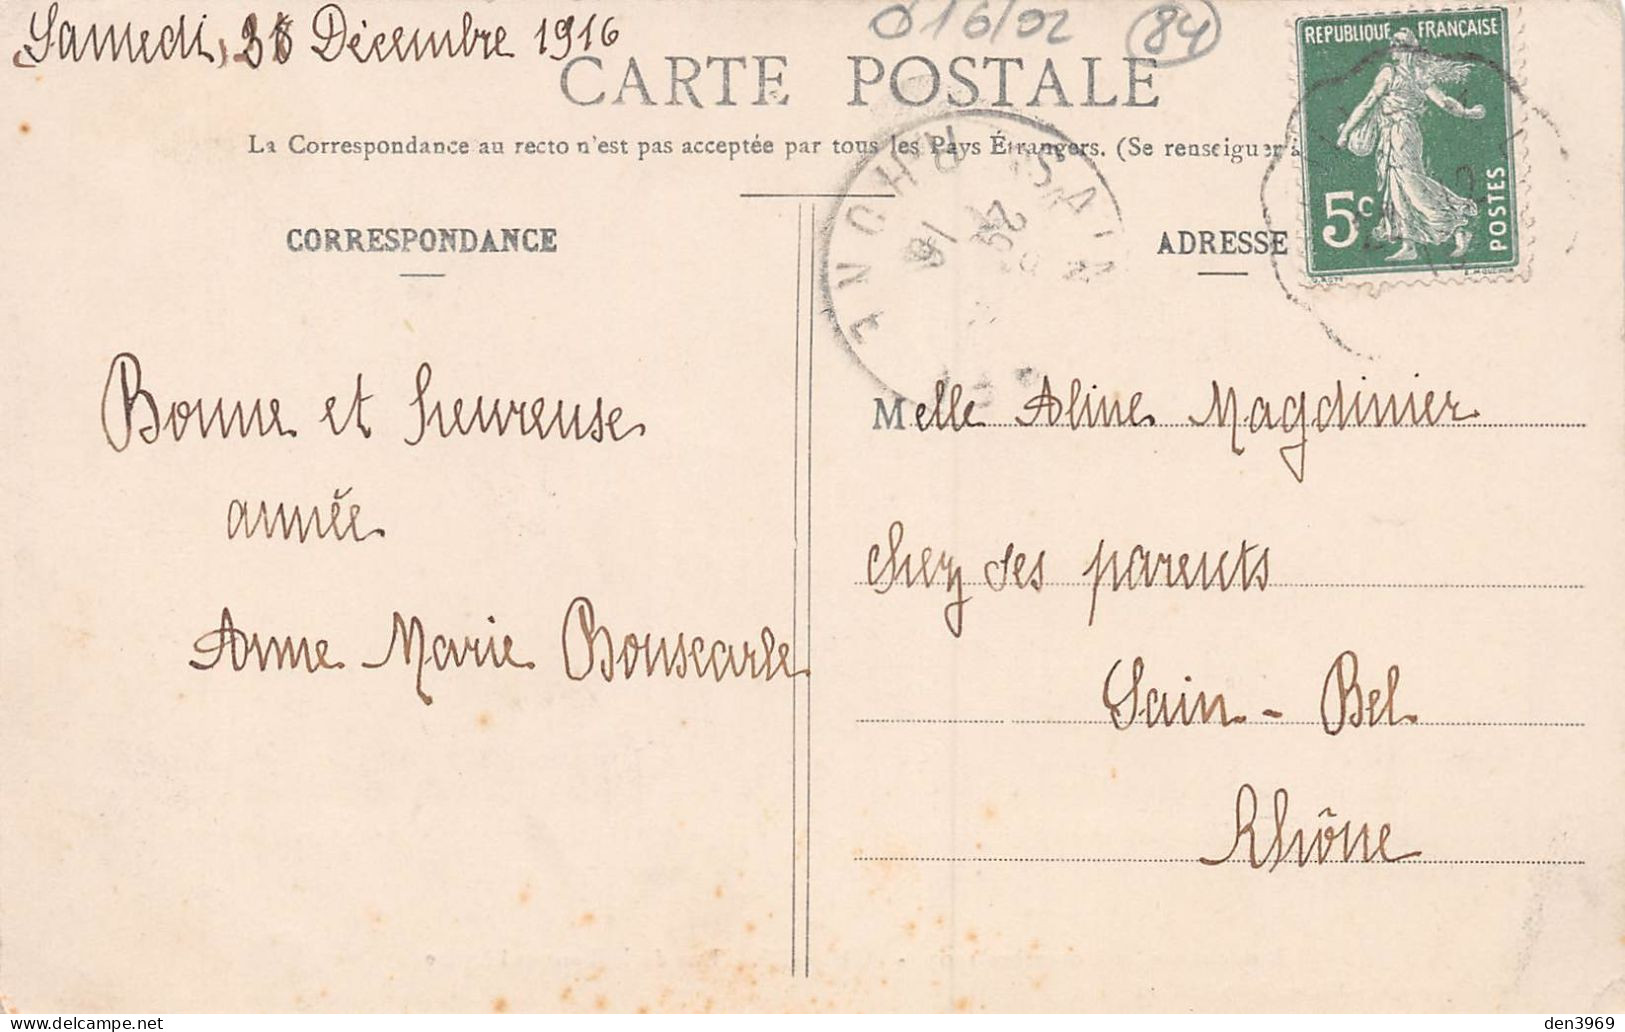 Samedi, 38 Décembre 1916
016/02
84
REPUBLIQUE FRANÇAISE
5c
POSTES
CARTE POSTALE
La Correspondance au recto n'est pas acceptée par tous les Pays Étrangers. (Se renseigner à
SAIN
RHONE
16
CORRESPONDANCE
ADRESSE
Bonne et heureuse
année
Anne Marie Bouscarle
Melle Aline Magdinier
chez ses parents
Sain-Bel
Rhône
den3969